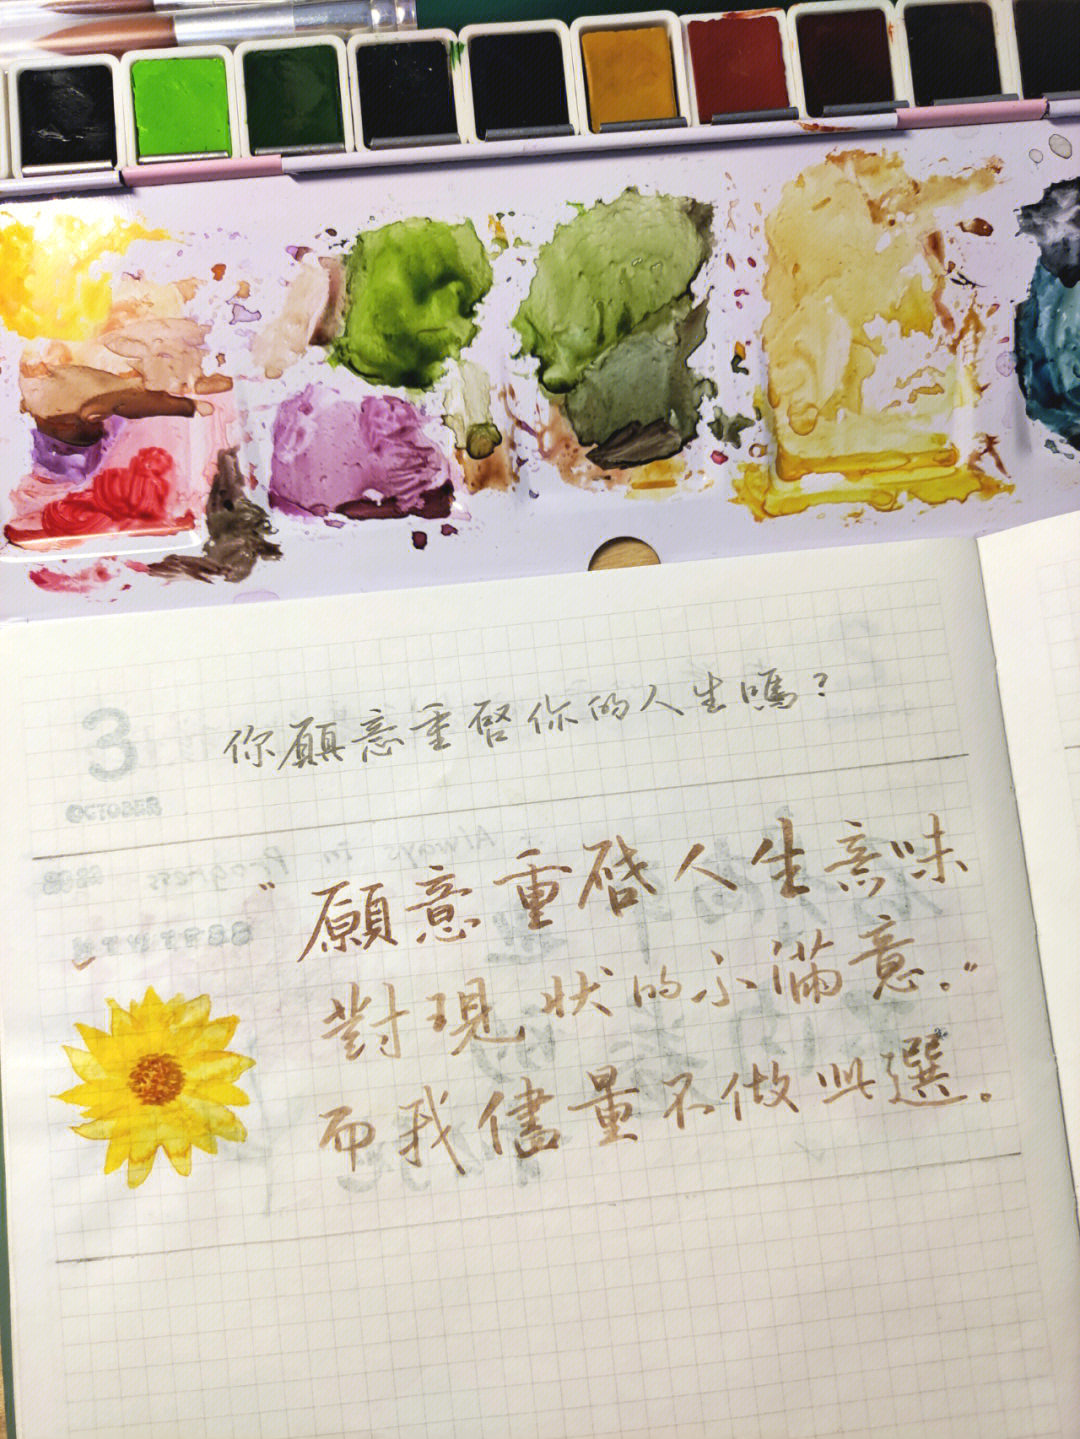 3
OCTOBER
你願意重啓你的人生嗎？
“願意重啓人生意味
對現狀的不滿意。”
而我儘量不做此選。